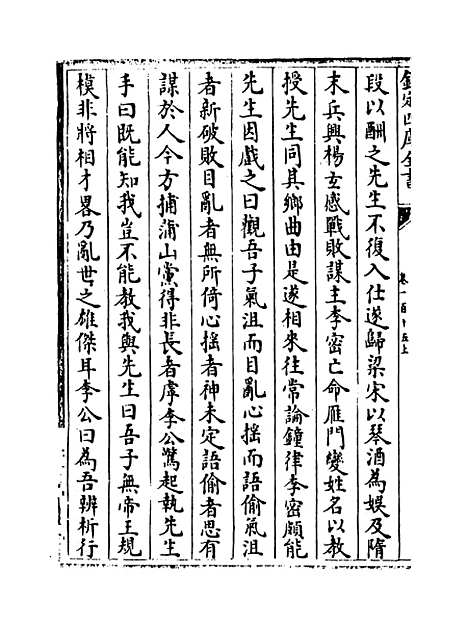 欽定四庫全書
卷一百十五上
段以酬之先生不復入仕遂歸梁宋以琴酒為娛及隋
末兵興楊玄感戰敗謀主李密亡命雁門變姓名以教
授先生同其鄉曲由是遂相來往常論鐘律李密頗能
先生因戲之曰觀吾子氣沮而目亂心揺而語偷氣沮
者新破敗目亂者無所倚心揺者神未定語偷者思有
謀於人今方捕蒲山黨得非長者虖李公驚起執先生
手曰既能知我豈不能教我與先生曰吾子無帝王規
模非將相才畧乃亂世之雄傑耳李公曰為吾辨析行